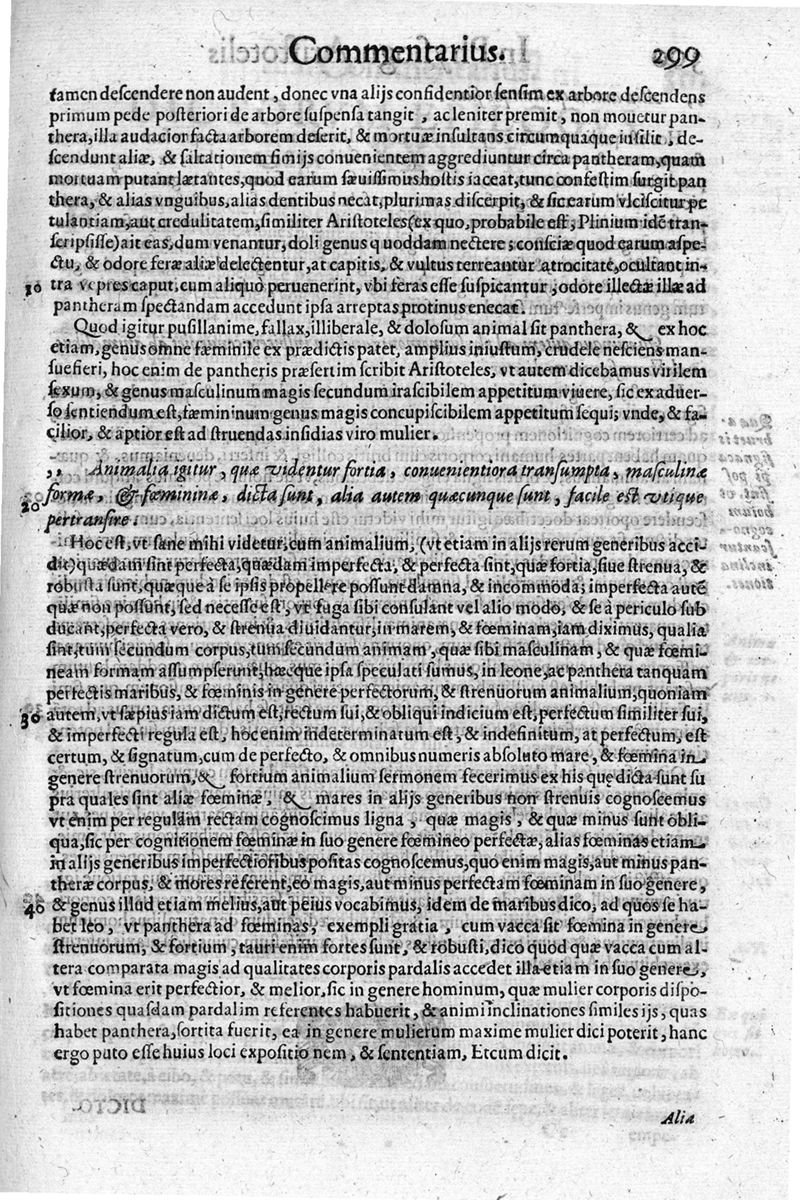 Commentarius. 299
tamen descendere non audent, donec vna alijs confidentior sensim ex arbore descendens
primum pede posteriori de arbore suspensa tangit, ac leniter premit, non mouetur pan-
thera, illa audacior facta arborem deserit, & mortuæ insultans circumquaque insilit, de-
scendunt aliæ, & saltationem simijs conuenientem aggrediuntur circa pantheram, quam
mortuam putant lætantes, quod earum sæuissimus hostis iaceat, tunc confestim surgit pan
thera, & alias vnguibus, alias dentibus necat, plurimas discerpit, & sic earum vlciscitur pe
tulantiam, aut credulitatem, similiter Aristoteles (ex quo, probabile est, Plinium idē tran-
scripsisse) ait eas, dum venantur, doli genus quoddam nectere; consciæ quod earum aspe-
ctu, & odore feræ aliæ delectentur, at capitis, & vultus terreantur atrocitate, ocultant in-
10 tra vepres caput, cum aliquo peruenerint, vbi feras esse suspicantur, odore illectæ illæ ad
pantheram spectandam accedunt ipsa arreptas protinus enecat.
Quod igitur pusillanime, fallax, illiberale, & dolosum animal sit panthera, & ex hoc
etiam, genus omne fæminile ex prædictis patet, amplius iniustum, crudele nesciens man-
suefieri, hoc enim de pantheris præsertim scribit Aristoteles, vt autem dicebamus virilem
sexum, & genus masculinum magis secundum irascibilem appetitum viuere, sic ex aduer-
so sentiendum est, fæmininum genus magis concupiscibilem appetitum sequi; vnde, & fa-
cilior, & aptior est ad struendas insidias viro mulier.
,, Animalia igitur, quæ videntur fortia, conuenientiora transumpta, masculinæ
20 formæ, & fœmininæ, dicta sunt, alia autem quæcunque sunt, facile est vtique
pertransire.
Hoc est, vt sane mihi videtur, cum animalium, (vt etiam in alijs rerum generibus acci-
dit) quædam sint perfecta, quædam imperfecta, & perfecta sint, quæ fortia, siue strenua, &
robusta sunt, quæque à se ipsis propellere possunt damna, & incommoda; imperfecta autē
quæ non possunt, sed necesse est, vt fuga sibi consulant vel alio modo, & se à periculo sub
ducant, perfecta vero, & strenua diuidantur, in marem, & fœminam, iam diximus, qualia
sint, tum secundum corpus, tum secundum animam, quæ sibi masculinam, & quæ fœmi-
neam formam assumpserunt, hæcque ipsa speculati sumus, in leone, ac panthera tanquam
perfectis maribus, & fœminis in genere perfectorum, & strenuorum animalium, quoniam
30 autem, vt sæpius iam dictum est, rectum sui, & obliqui indicium est, perfectum similiter sui,
& imperfecti regula est, hoc enim indeterminatum est, & indefinitum, at perfectum, est
certum, & signatum, cum de perfecto, & omnibus numeris absoluto mare, & fœmina in
genere strenuorum, & fortium animalium sermonem fecerimus ex his quę dicta sunt su
pra quales sint aliæ fœminæ, & mares in alijs generibus non strenuis cognoscemus
vt enim per regulam rectam cognoscimus ligna, quæ magis, & quæ minus sunt obli-
qua, sic per cognitionem fœminæ in suo genere fœmineo perfectæ, alias fœminas etiam
in alijs generibus imperfectioribus positas cognoscemus, quo enim magis, aut minus pan-
theræ corpus, & mores referent, eo magis, aut minus perfectam fœminam in suo genere,
40 & genus illud etiam melius, aut peius vocabimus, idem de maribus dico, ad quos se ha-
bet leo, vt panthera ad fœminas, exempli gratia, cum vacca sit fœmina in genere
strenuorum, & fortium, tauri enim fortes sunt, & robusti, dico quod quæ vacca cum al-
tera comparata magis ad qualitates corporis pardalis accedet illa etiam in suo genere,
vt fœmina erit perfectior, & melior, sic in genere hominum, quæ mulier corporis dispo-
sitiones quasdam pardalim referentes habuerit, & animi inclinationes similes ijs, quas
habet panthera, sortita fuerit, ea in genere mulierum maxime mulier dici poterit, hanc
ergo puto esse huius loci expositio nem, & sententiam, Et cum dicit.
Alia